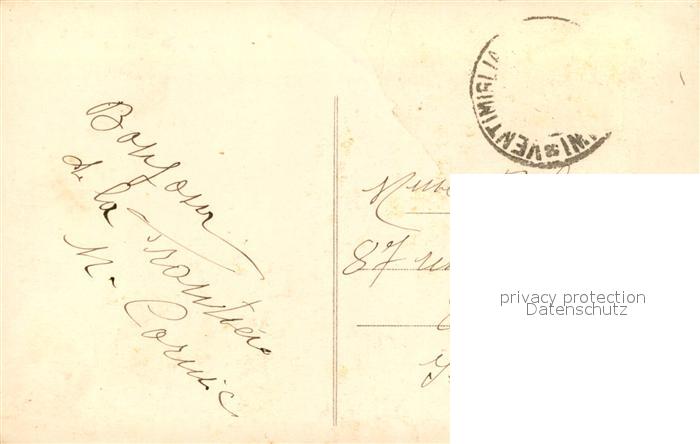 Bonjour
de la frontière
M. Cornic
VENTIMIGLIA
87 
privacy protection
Datenschutz